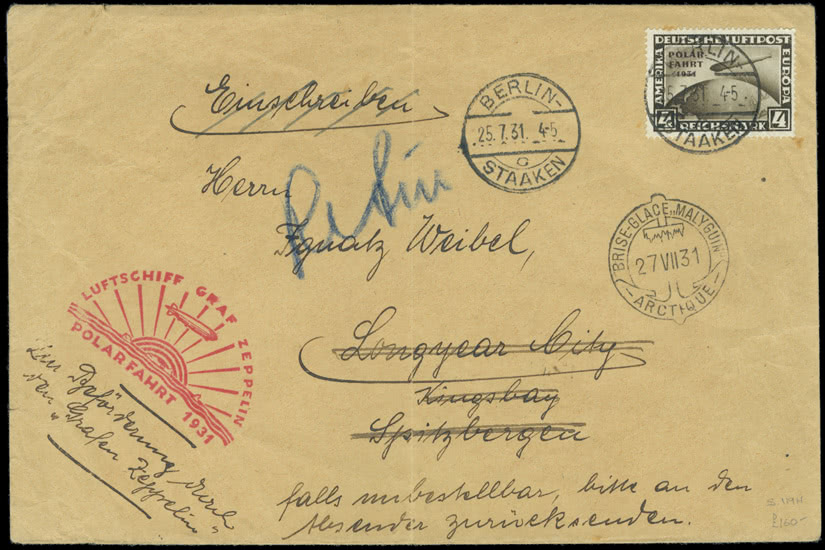 DEUTSCHE LUFTPOST
AMERIKA
EUROPA
POLAR-
FAHRT
1931
4
REICHSMARK
4
BERLIN-
25.7.31. 4-5
STAAKEN
Einschreiben
BERLIN-
25.7.31. 4-5
G
STAAKEN
Herrn
Ignatz Weibel,
"BRISE-GLACE „MALYGUIN"
27 VII 31
ARCTIQUE
Longyear City
Kingsbay
Spitzbergen
LUFTSCHIFF GRAF ZEPPELIN
POLARFAHRT 1931
Zur Beförderung durch
den "Grafen Zeppelin"
falls unbestellbar, bitte an den
Absender zurücksenden.